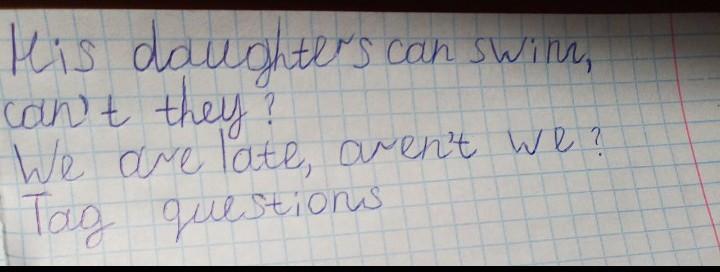 His daughters can swim,
can't they?
We are late, aren't we?
Tag questions